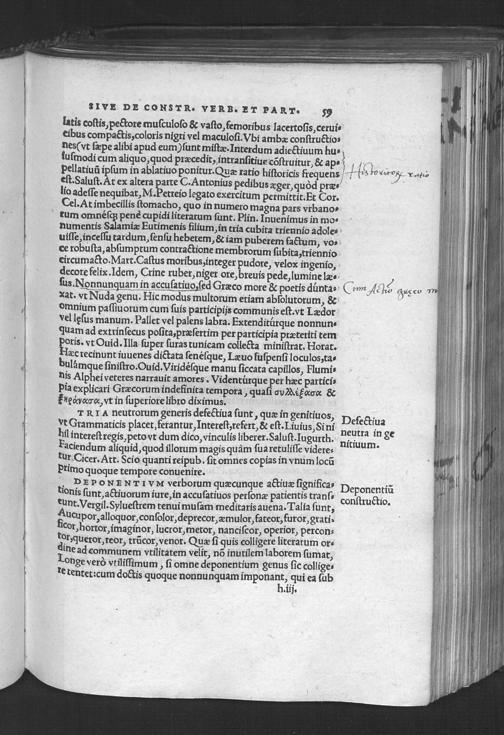 SIVE DE CONSTR. VERB. ET PART. 59
latis costis, pectore musculoso & vasto, femoribus lacertosis, cerui-
cibus compactis, coloris nigri vel maculosi. Vbi ambæ constructio-
nes (vt sæpe alibi apud eum) sunt mistæ. Interdum adiectiuum hu-
iusmodi cum aliquo, quod præcedit, intransitiue cōstruitur, & ap-
pellatiuum ipsum in ablatiuo ponitur. Quæ ratio historicis frequens
est. Salust. At ex altera parte C. Antonius pedibus æger, quòd præ-
lio adesse nequibat, M. Petreio legato exercitum permittit. Et Cor.
Cel. At imbecillis stomacho, quo in numero magna pars vrbano-
tum omnésq; penè cupidi literarum sunt. Plin. Inuenimus in mo-
numentis Salamiæ Eutimenis filium, in tria cubita triennio adole-
uisse, incessu tardum, sensu hebetem, & iam puberem factum, vo-
ce robusta, absumptum contractione membrorum subita, triennio
circumacto. Mart. Castus moribus, integer pudore, velox ingenio,
decore felix. Idem, Crine ruber, niger ore, breuis pede, lumine læ-
sus. Nonnunquam in accusatiuo, sed Græco more & poetis dūnta-
xat. vt Nuda genu. Hic modus multorum etiam absolutorum, &
omnium passiuorum cum suis participijs communis est. vt Lædor
vel lęsus manum. Pallet vel palens labra. Extenditúrque nonnun-
quam ad extrinsecus posita, præsertim per participia præteriti tem-
poris. vt Ouid. Illa super suras tunicam collecta ministrat. Horat.
Hæc recinunt iuuenes dictata senésque, Læuo suspensi loculos, ta-
bulámque sinistro. Ouid. Viridésque manu siccata capillos, Flumi-
nis Alphei veteres narrauit amores. Videntúrque per hæc partici-
pia explicari Græcorum indefinita tempora, quasi συλλέξασα &
ξηράνασα, vt in superiore libro diximus.
TRIA neutrorum generis defectiua sunt, quæ in genitiuos,
vt Grammaticis placet, ferantur, Interest, refert, & est. Liuius, Si ni
hil interest regis, peto vt dum dico, vinculis liberer. Salust. Iugurth.
Faciendum aliquid, quod illorum magis quàm sua retulisse videre-
tur. Cicer. Att. Scio quanti reipub. sit omnes copias in vnum locū
primo quoque tempore conuenire.
DEPONENTIVM verborum quæcunque actiuæ significa-
tionis sunt, actiuorum iure, in accusatiuos personæ patientis trans-
eunt. Vergil. Syluestrem tenui musam meditaris auena. Talia sunt,
Aucupor, alloquor, consolor, deprecor, æmulor, fateor, furor, grati-
ficor, hortor, imaginor, lucror, metor, nanciscor, operior, percon-
tor, queror, reor, trūcor, venor. Quæ si quis colligere literatum or-
dine ad communem vtilitatem velit, nō inutilem laborem sumat,
Longe verò vtilissimum, si omne deponentium genus sic collige-
re tentet: cum doctis quoque nonnunquam imponant, qui ea sub
h.iij.
Defectiua
neutra in ge
nitiuum.
Deponentiū
constructio.